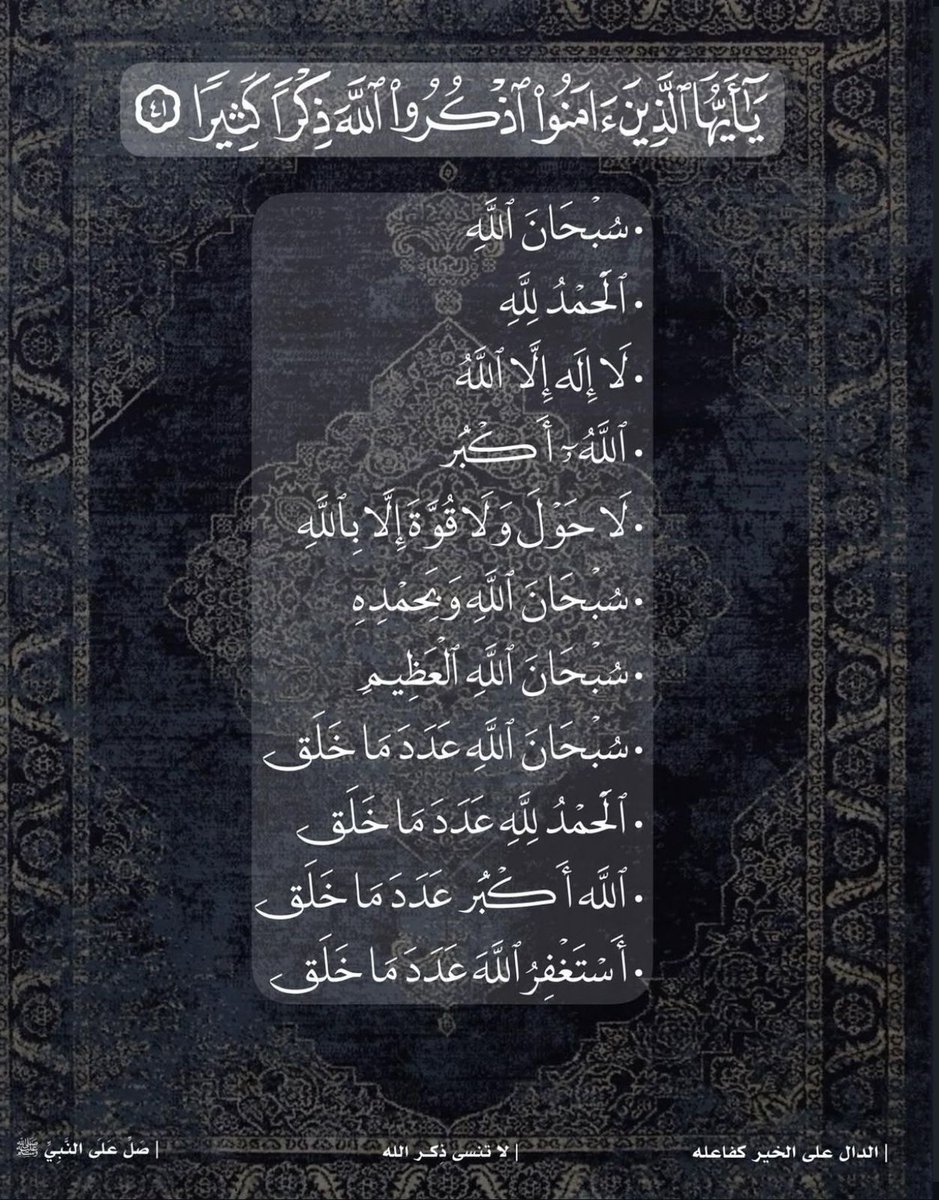 يَٰٓأَيُّهَا ٱلَّذِينَ ءَامَنُوا۟ ٱذْكُرُوا۟ ٱللَّهَ ذِكْرًا كَثِيرًا ٤١
• سُبْحَانَ ٱللَّهِ
• ٱلْحَمْدُ لِلَّهِ
• لَا إِلَه إِلَّا ٱللَّهُ
• ٱللَّهُۥٓ أَكْبَُر
• لَا حَوْلَ وَلَا قُوَّةَ إِلَّا بِٱللَّهِ
• سُبْحَانَ ٱللَّهِ وَبَِحَمْدِهِ
• سُبْحَانَ ٱللَّهِ ٱلْعَظِيمِ
• سُبْحَانَ ٱللَّهِ عَدَدَ مَا خَلَق
• ٱلْحَمْدُ لِلَّهِ عَدَدَ مَا خَلَق
• ٱللَّه أَكْبَُر عَدَدَ مَا خَلَق
• أَسْتَغْفِرُ ٱللَّهَ عَدَدَ مَا خَلَق
| الدال على الخير كفاعله | لا تنسى ذِكر الله | صَلِّ عَلَى النَّبِيِّ ﷺ